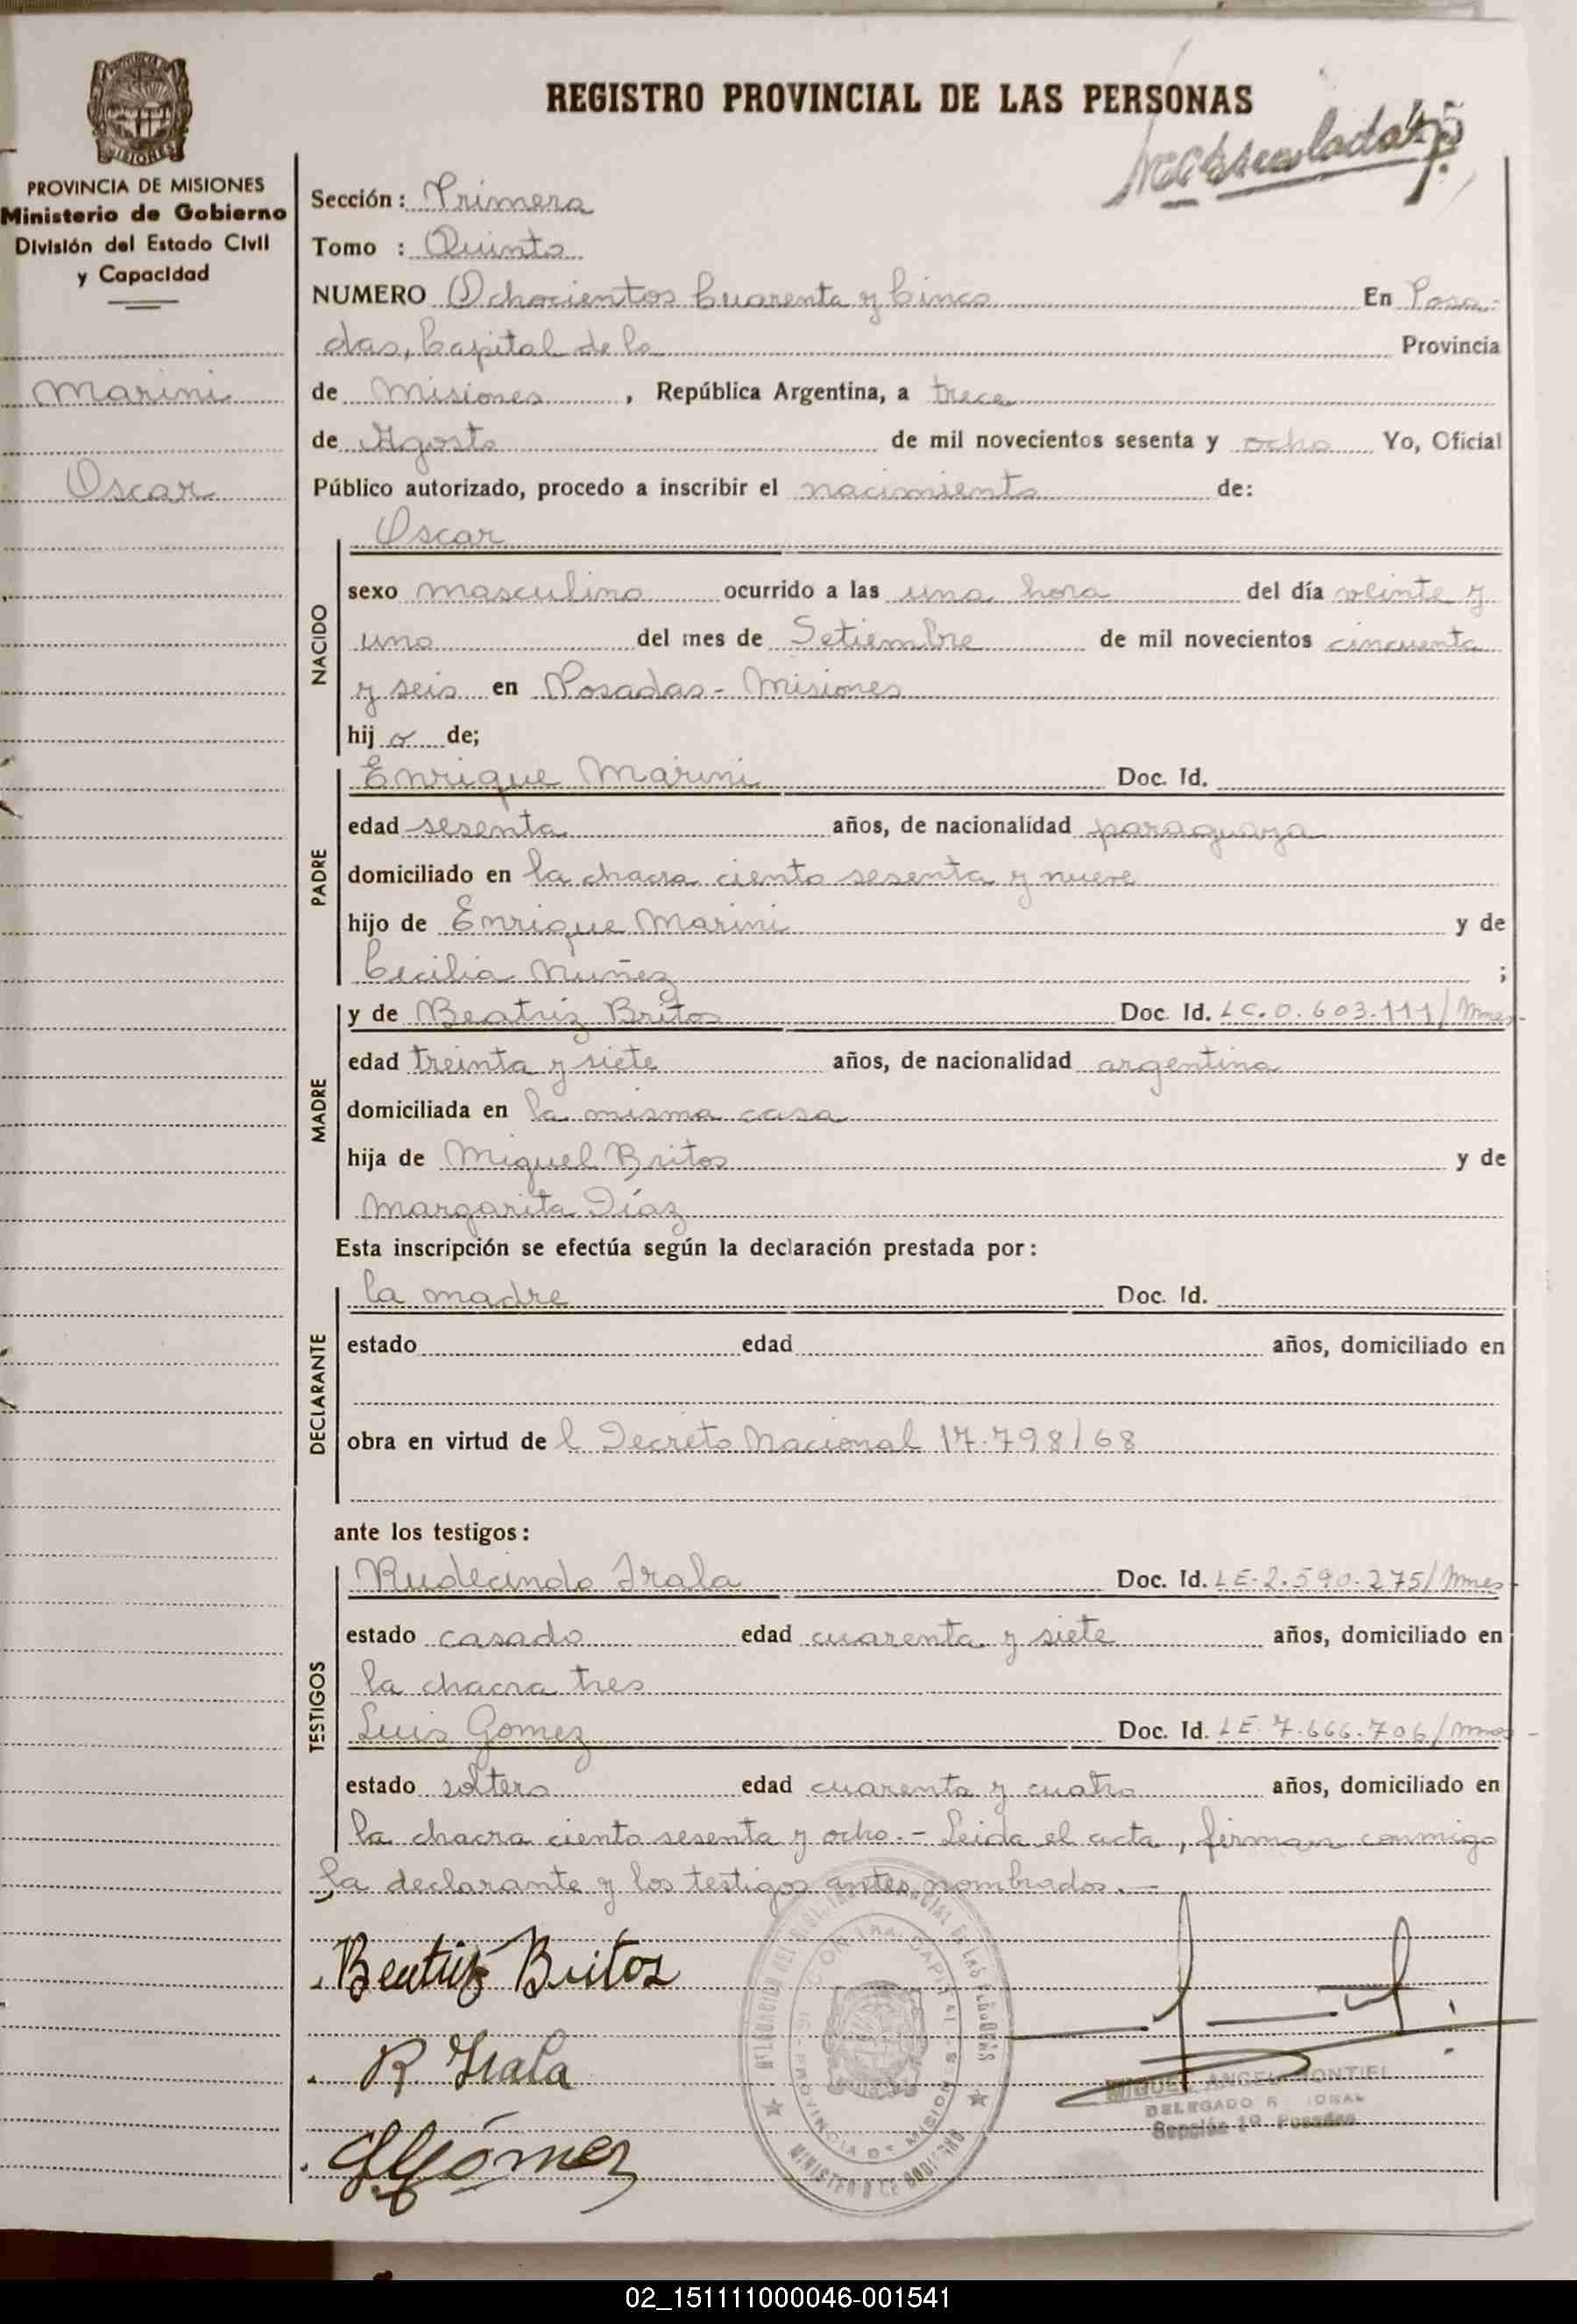 REGISTRO PROVINCIAL DE LAS PERSONAS
MISIONES
PROVINCIA DE MISIONES
Ministerio de Gobierno
División del Estado Civil
y Capacidad
Marini
Oscar
Sección: Primera
Tomo : Quinto
NUMERO Ochocientos Cuarenta y Cinco En Posa-
das, Capital de la Provincia
de Misiones, República Argentina, a trece
de Agosto de mil novecientos sesenta y ocho Yo, Oficial
Público autorizado, procedo a inscribir el nacimiento de:
Oscar
NACIDO
sexo masculino ocurrido a las una hora del día veinte y
uno del mes de Setiembre de mil novecientos cincuenta
y seis en Posadas - Misiones
hijo de;
PADRE
Enrique Marini Doc. Id.
edad sesenta años, de nacionalidad paraguaya
domiciliado en la chacra ciento sesenta y nueve
hijo de Enrique Marini y de
Cecilia Nuñez ;
MADRE
y de Beatriz Britos Doc. Id. LC. 0.603.111/Mnes-
edad treinta y siete años, de nacionalidad argentina
domiciliada en la misma casa
hija de Miguel Britos y de
Margarita Díaz
Esta inscripción se efectúa según la declaración prestada por:
DECLARANTE
la madre Doc. Id.
estado edad años, domiciliado en
obra en virtud de l Decreto Nacional 17.798/68
ante los testigos:
TESTIGOS
Rudecindo Irala Doc. Id. LE. 2.590.275/Mnes-
estado casado edad cuarenta y siete años, domiciliado en
la chacra tres
Luis Gomez Doc. Id. LE. 7.666.706/Mnes-
estado soltero edad cuarenta y cuatro años, domiciliado en
la chacra ciento sesenta y ocho.- Leida el acta, firman conmigo
la declarante y los testigos antes nombrados.-
Beatriz Britos
R. Irala
LGómez
MIGUEL ANGEL MONTIEL
DELEGADO R IONAL
Sección 1ª Posadas
PROVINCIA DE MISIONES
MINISTERIO DE GOBIERNO
02_151111000046-001541